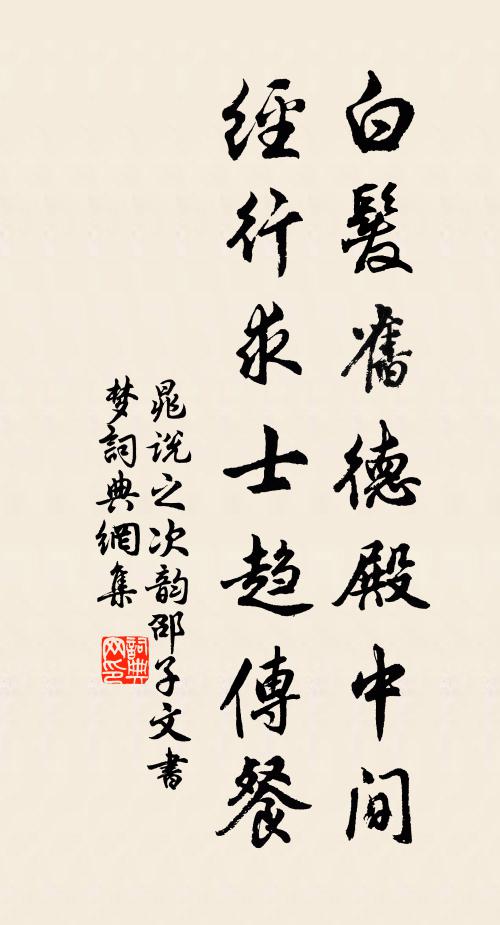 白髮舊德殿中间
經行求士趋傳餐
晁说之次韵邵子文書
梦詞典網集
詞典
网印